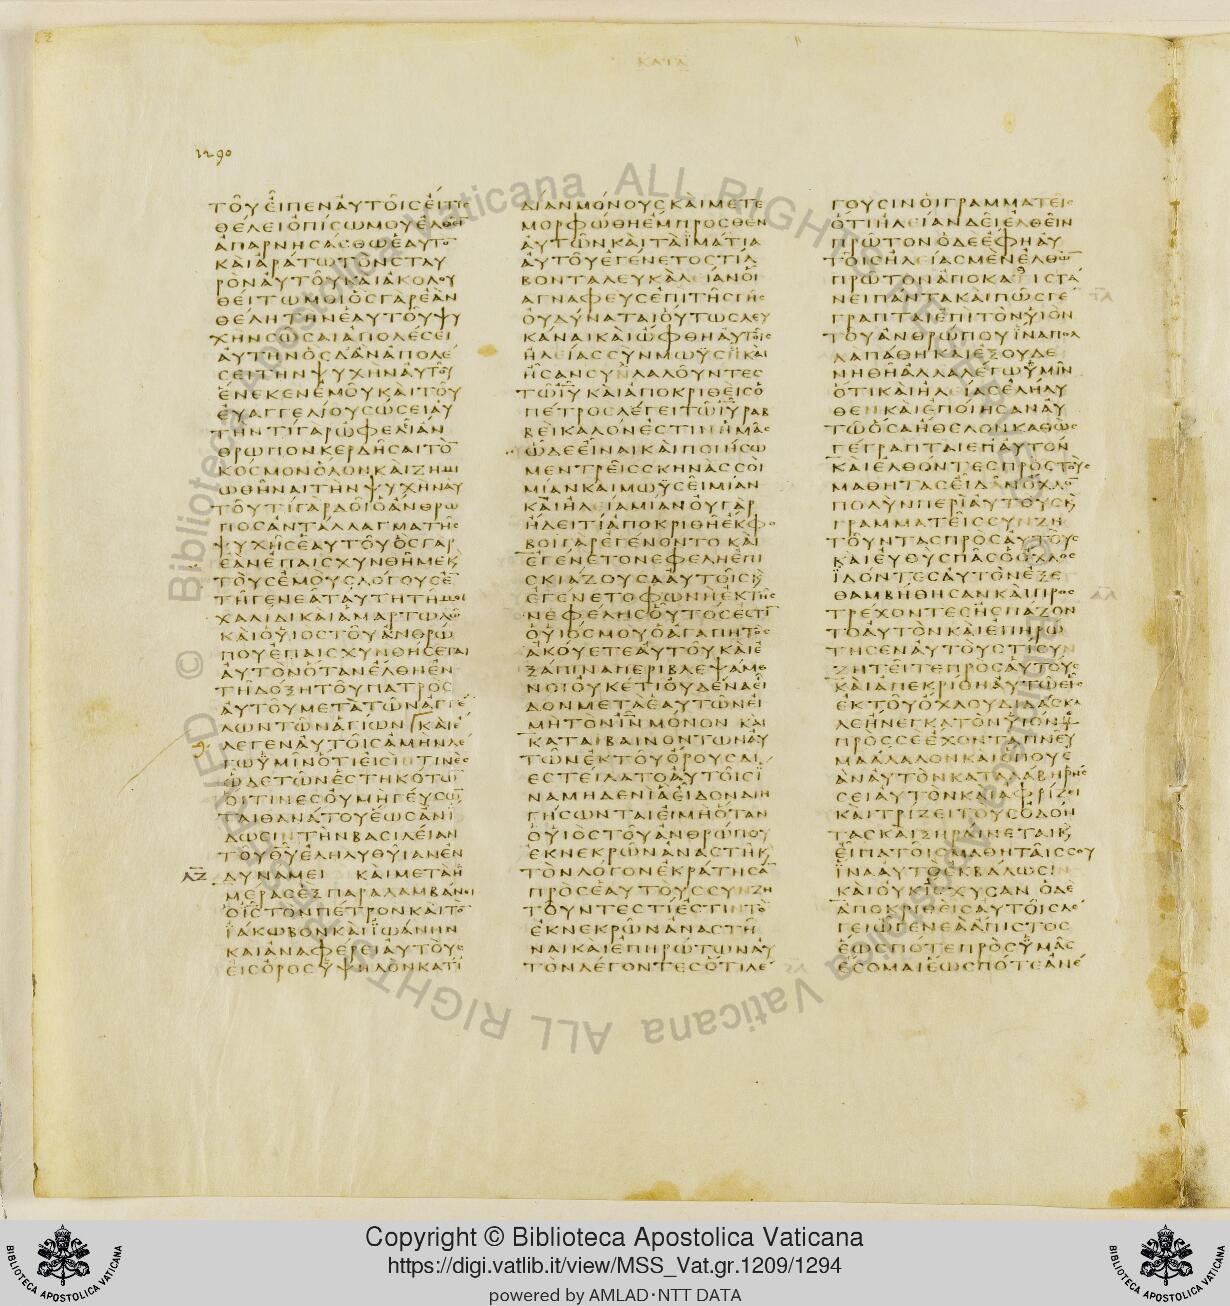 ΚΑΤΑ
1290
ΤΟΥ ΕΙΠΕΝ ΑΥΤΟΙΣ ΕΙ ΤΙΣ
ΘΕΛΕΙ ΟΠΙΣΩ ΜΟΥ ΕΛΘΕΙΝ
ΑΠΑΡΝΗΣΑΣΘΩ ΕΑΥΤΟΝ
ΚΑΙ ΑΡΑΤΩ ΤΟΝ ΣΤΑΥ
ΡΟΝ ΑΥΤΟΥ ΚΑΙ ΑΚΟΛΟΥ
ΘΕΙΤΩ ΜΟΙ ΟΣ ΓΑΡ ΕΑΝ
ΘΕΛΗ ΤΗΝ ΕΑΥΤΟΥ ΨΥ
ΧΗΝ ΣΩΣΑΙ ΑΠΟΛΕΣΕΙ
ΑΥΤΗΝ ΟΣ Δ ΑΝ ΑΠΟΛΕ
ΣΕΙ ΤΗΝ ΨΥΧΗΝ ΑΥΤΟΥ
ΕΝΕΚΕΝ ΕΜΟΥ ΚΑΙ ΤΟΥ
ΕΥΑΓΓΕΛΙΟΥ ΣΩΣΕΙ ΑΥ
ΤΗΝ ΤΙ ΓΑΡ ΩΦΕΛΕΙ ΑΝ
ΘΡΩΠΟΝ ΚΕΡΔΗΣΑΙ ΤΟΝ
ΚΟΣΜΟΝ ΟΛΟΝ ΚΑΙ ΖΗΜΙ
ΩΘΗΝΑΙ ΤΗΝ ΨΥΧΗΝ ΑΥ
ΤΟΥ ΤΙ ΓΑΡ ΔΟΙ Ο ΑΝΘΡΩ
ΠΟΣ ΑΝΤΑΛΛΑΓΜΑ ΤΗΣ
ΨΥΧΗΣ ΕΑΥΤΟΥ ΟΣ ΓΑΡ
ΕΑΝ ΕΠΑΙΣΧΥΝΘΗ ΜΕ Κ
ΤΟΥΣ ΕΜΟΥΣ ΛΟΓΟΥΣ ΕΝ
ΤΗ ΓΕΝΕΑ ΤΑΥΤΗ ΤΗ ΜΟΙ
ΧΑΛΙΔΙ ΚΑΙ ΑΜΑΡΤΩΛΩ
ΚΑΙ Ο ΥΙΟΣ ΤΟΥ ΑΝΘΡΩ
ΠΟΥ ΕΠΑΙΣΧΥΝΘΗΣΕΤΑΙ
ΑΥΤΟΝ ΟΤΑΝ ΕΛΘΗ ΕΝ
ΤΗ ΔΟΞΗ ΤΟΥ ΠΑΤΡΟΣ
ΑΥΤΟΥ ΜΕΤΑ ΤΩΝ ΑΓΓΕ
ΛΩΝ ΤΩΝ ΑΓΙΩΝ ΚΑΙ Ε
ΛΕΓΕΝ ΑΥΤΟΙΣ ΑΜΗΝ ΛΕ
ΓΩ ΥΜΙΝ ΟΤΙ ΕΙΣΙΝ ΤΙΝΕΣ
ΩΔΕ ΤΩΝ ΕΣΤΗΚΟΤΩΝ
ΟΙΤΙΝΕΣ ΟΥ ΜΗ ΓΕΥΣΩΝ
ΤΑΙ ΘΑΝΑΤΟΥ ΕΩΣ ΑΝ Ι
ΔΩΣΙΝ ΤΗΝ ΒΑΣΙΛΕΙΑΝ
ΤΟΥ ΘΥ ΕΛΗΛΥΘΥΙΑΝ ΕΝ
ΛΖ ΔΥΝΑΜΕΙ ΚΑΙ ΜΕΤΑ Η
ΜΕΡΑΣ ΕΞ ΠΑΡΑΛΑΜΒΑΝΕΙ
Ο ΙΣ ΤΟΝ ΠΕΤΡΟΝ ΚΑΙ ΤΟΝ
ΙΑΚΩΒΟΝ ΚΑΙ ΙΩΑΝΗΝ
ΚΑΙ ΑΝΑΦΕΡΕΙ ΑΥΤΟΥΣ
ΕΙΣ ΟΡΟΣ ΥΨΗΛΟΝ ΚΑΤ Ι
ΔΙΑΝ ΜΟΝΟΥΣ ΚΑΙ ΜΕΤΕ
ΜΟΡΦΩΘΗ ΕΜΠΡΟΣΘΕΝ
ΑΥΤΩΝ ΚΑΙ ΤΑ ΙΜΑΤΙΑ
ΑΥΤΟΥ ΕΓΕΝΕΤΟ ΣΤΙΛ
ΒΟΝΤΑ ΛΕΥΚΑ ΛΕΙΑΝ ΟΙ
Α ΓΝΑΦΕΥΣ ΕΠΙ ΤΗΣ ΓΗΣ
ΟΥ ΔΥΝΑΤΑΙ ΟΥΤΩΣ ΛΕΥ
ΚΑΝΑΙ ΚΑΙ ΩΦΘΗ ΑΥΤΟΙΣ
ΗΛΕΙΑΣ ΣΥΝ ΜΩΥΣΗ ΚΑΙ
ΗΣΑΝ ΣΥΝΛΑΛΟΥΝΤΕΣ
ΤΩ ΙΥ ΚΑΙ ΑΠΟΚΡΙΘΕΙΣ Ο
ΠΕΤΡΟΣ ΛΕΓΕΙ ΤΩ ΙΥ ΡΑΒ
ΒΕΙ ΚΑΛΟΝ ΕΣΤΙΝ ΗΜΑΣ
ΩΔΕ ΕΙΝΑΙ ΚΑΙ ΠΟΙΗΣΩ
ΜΕΝ ΤΡΕΙΣ ΣΚΗΝΑΣ ΣΟΙ
ΜΙΑΝ ΚΑΙ ΜΩΥΣΕΙ ΜΙΑΝ
ΚΑΙ ΗΛΕΙΑ ΜΙΑΝ ΟΥ ΓΑΡ
ΗΔΕΙ ΤΙ ΑΠΟΚΡΙΘΗ ΕΚΦΟ
ΒΟΙ ΓΑΡ ΕΓΕΝΟΝΤΟ ΚΑΙ
ΕΓΕΝΕΤΟ ΝΕΦΕΛΗ ΕΠΙ
ΣΚΙΑΖΟΥΣΑ ΑΥΤΟΙΣ Κ
ΕΓΕΝΕΤΟ ΦΩΝΗ ΕΚ ΤΗΣ
ΝΕΦΕΛΗΣ ΟΥΤΟΣ ΕΣΤΙΝ
Ο ΥΙΟΣ ΜΟΥ Ο ΑΓΑΠΗΤΟΣ
ΑΚΟΥΕΤΕ ΑΥΤΟΥ ΚΑΙ Ε
ΞΑΠΙΝΑ ΠΕΡΙΒΛΕΨΑΜΕ
ΝΟΙ ΟΥΚΕΤΙ ΟΥΔΕΝΑ ΕΙ
ΔΟΝ ΜΕΤΑ ΕΑΥΤΩΝ ΕΙ
ΜΗ ΤΟΝ ΙΝ ΜΟΝΟΝ ΚΑΙ
ΚΑΤΑΒΑΙΝΟΝΤΩΝ ΑΥ
ΤΩΝ ΕΚ ΤΟΥ ΟΡΟΥΣ ΔΙ
ΕΣΤΕΙΛΑΤΟ ΑΥΤΟΙΣ Ι
ΝΑ ΜΗΔΕΝΙ Α ΕΙΔΟΝ ΔΙΗ
ΓΗΣΩΝΤΑΙ ΕΙ ΜΗ ΟΤΑΝ
Ο ΥΙΟΣ ΤΟΥ ΑΝΘΡΩΠΟΥ
ΕΚ ΝΕΚΡΩΝ ΑΝΑΣΤΗ Κ
ΤΟΝ ΛΟΓΟΝ ΕΚΡΑΤΗΣΑΝ
ΠΡΟΣ ΕΑΥΤΟΥΣ ΣΥΝΖΗ
ΤΟΥΝΤΕΣ ΤΙ ΕΣΤΙΝ ΤΟ
ΕΚ ΝΕΚΡΩΝ ΑΝΑΣΤΗ
ΝΑΙ ΚΑΙ ΕΠΗΡΩΤΩΝ ΑΥ
ΤΟΝ ΛΕΓΟΝΤΕΣ ΟΤΙ ΛΕ
ΓΟΥΣΙΝ ΟΙ ΓΡΑΜΜΑΤΕΙΣ
ΟΤΙ ΗΛΕΙΑΝ ΔΕΙ ΕΛΘΕΙΝ
ΠΡΩΤΟΝ Ο ΔΕ ΕΦΗ ΑΥ
ΤΟΙΣ ΗΛΕΙΑΣ ΜΕΝ ΕΛΘΩΝ
ΠΡΩΤΟΝ ΑΠΟΚΑΤΙΣΤΑ
ΝΕΙ ΠΑΝΤΑ ΚΑΙ ΠΩΣ ΓΕ
ΓΡΑΠΤΑΙ ΕΠΙ ΤΟΝ ΥΙΟΝ
ΤΟΥ ΑΝΘΡΩΠΟΥ ΙΝΑ ΠΟΛ
ΛΑ ΠΑΘΗ ΚΑΙ ΕΞΟΥΔΕ
ΝΗΘΗ ΑΛΛΑ ΛΕΓΩ ΥΜΙΝ
ΟΤΙ ΚΑΙ ΗΛΕΙΑΣ ΕΛΗΛΥ
ΘΕΝ ΚΑΙ ΕΠΟΙΗΣΑΝ ΑΥ
ΤΩ ΟΣΑ ΗΘΕΛΟΝ ΚΑΘΩΣ
ΓΕΓΡΑΠΤΑΙ ΕΠ ΑΥΤΟΝ
ΚΑΙ ΕΛΘΟΝΤΕΣ ΠΡΟΣ ΤΟΥΣ
ΜΑΘΗΤΑΣ ΕΙΔΑΝ ΟΧΛΟΝ
ΠΟΛΥΝ ΠΕΡΙ ΑΥΤΟΥΣ Κ
ΓΡΑΜΜΑΤΕΙΣ ΣΥΝΖΗ
ΤΟΥΝΤΑΣ ΠΡΟΣ ΑΥΤΟΥΣ
ΚΑΙ ΕΥΘΥΣ ΠΑΣ Ο ΟΧΛΟΣ
ΙΔΟΝΤΕΣ ΑΥΤΟΝ ΕΞΕ
ΘΑΜΒΗΘΗΣΑΝ ΚΑΙ ΠΡΟΣ
ΤΡΕΧΟΝΤΕΣ ΗΣΠΑΖΟΝ
ΤΟ ΑΥΤΟΝ ΚΑΙ ΕΠΗΡΩ
ΤΗΣΕΝ ΑΥΤΟΥΣ ΤΙ ΣΥΝ
ΖΗΤΕΙΤΕ ΠΡΟΣ ΑΥΤΟΥΣ
ΚΑΙ ΑΠΕΚΡΙΘΗ ΑΥΤΩ ΕΙΣ
ΕΚ ΤΟΥ ΟΧΛΟΥ ΔΙΔΑΣΚΑ
ΛΕ ΗΝΕΓΚΑ ΤΟΝ ΥΙΟΝ Μ
ΠΡΟΣ ΣΕ ΕΧΟΝΤΑ ΠΝΕΥ
ΜΑ ΑΛΑΛΟΝ ΚΑΙ ΟΠΟΥ Ε
ΑΝ ΑΥΤΟΝ ΚΑΤΑΛΑΒΗ ΡΗΣ
ΣΕΙ ΑΥΤΟΝ ΚΑΙ ΑΦΡΙΖΕΙ
ΚΑΙ ΤΡΙΖΕΙ ΤΟΥΣ ΟΔΟΝ
ΤΑΣ ΚΑΙ ΞΗΡΑΙΝΕΤΑΙ Κ
ΕΙΠΑ ΤΟΙΣ ΜΑΘΗΤΑΙΣ ΣΟΥ
ΙΝΑ ΑΥΤΟ ΕΚΒΑΛΩΣΙΝ
ΚΑΙ ΟΥΚ ΙΣΧΥΣΑΝ Ο ΔΕ
ΑΠΟΚΡΙΘΕΙΣ ΑΥΤΟΙΣ ΛΕ
ΓΕΙ Ω ΓΕΝΕΑ ΑΠΙΣΤΟΣ
ΕΩΣ ΠΟΤΕ ΠΡΟΣ ΥΜΑΣ
ΕΣΟΜΑΙ ΕΩΣ ΠΟΤΕ ΑΝΕ
© Biblioteca Apostolica Vaticana ALL RIGHTS RESERVED
Copyright © Biblioteca Apostolica Vaticana
https://digi.vatlib.it/view/MSS_Vat.gr.1209/1294
powered by AMLAD·NTT DATA
BIBLIOTECA APOSTOLICA VATICANA
BIBLIOTECA APOSTOLICA VATICANA